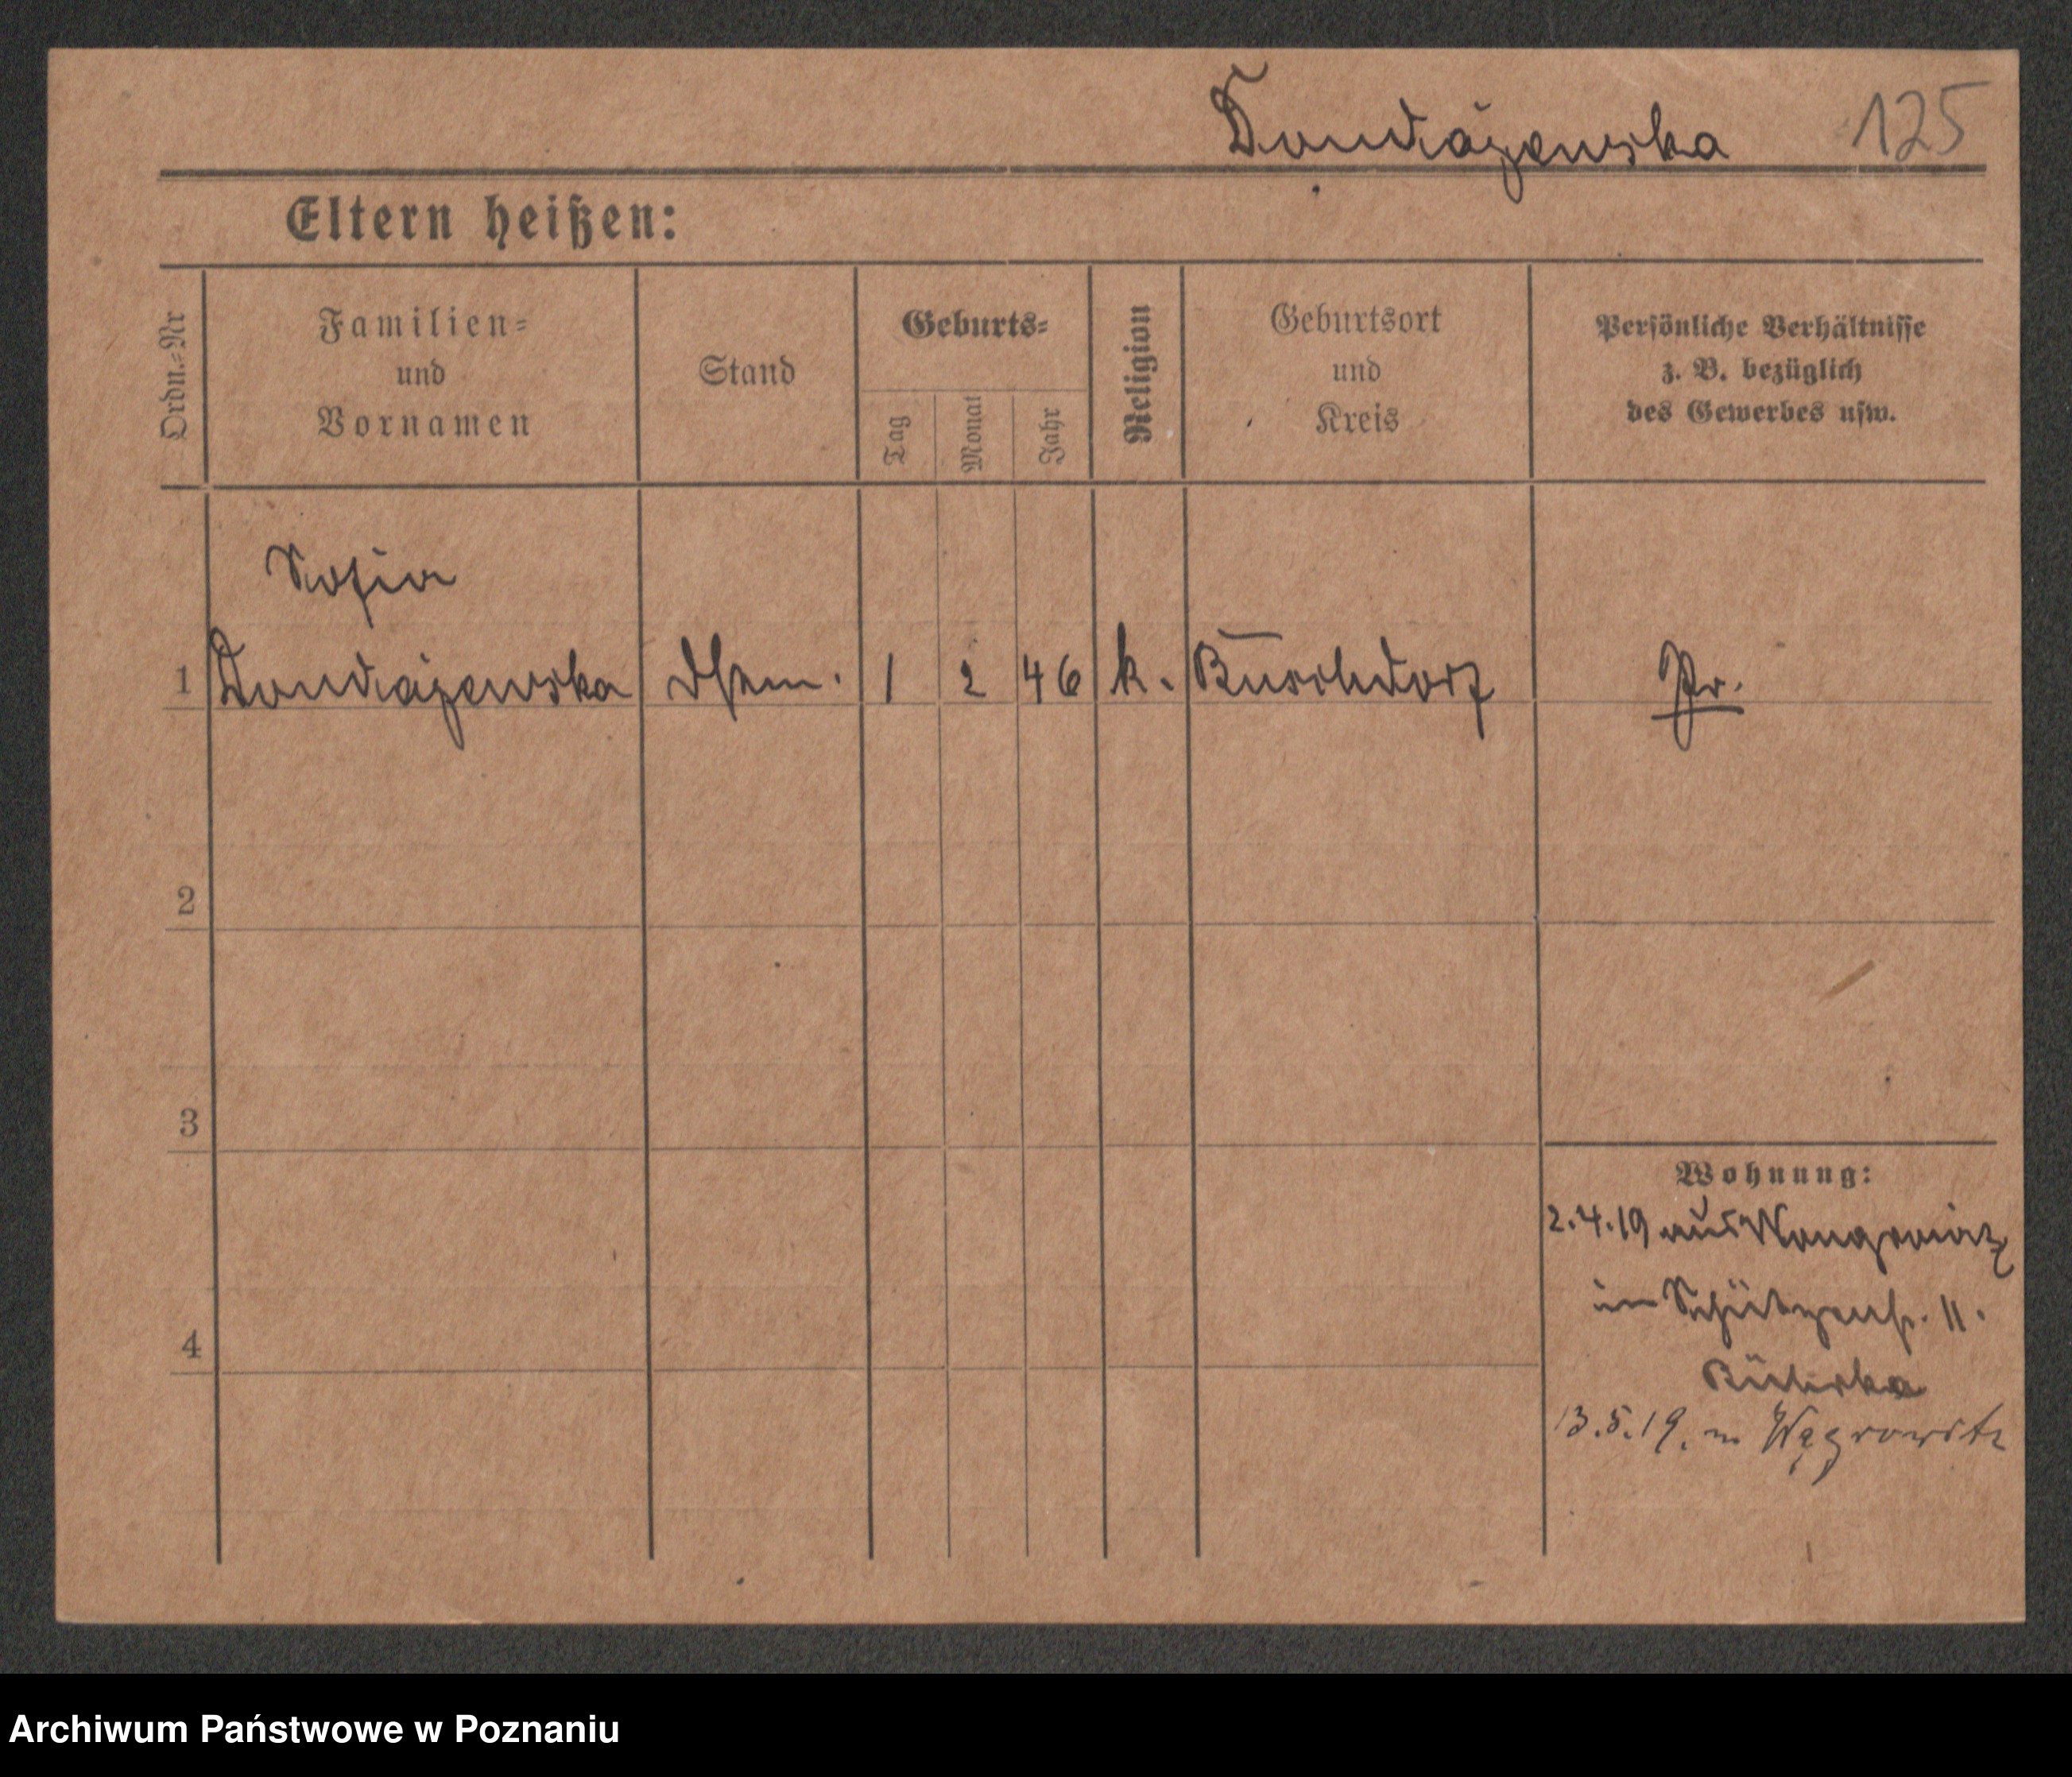 Dondażewska 125
Eltern heißen:
Ordn.-Nr
Familien-
und
Vornamen
Stand
Geburts-
Tag
Monat
Jahr
Religion
Geburtsort
und
Kreis
Persönliche Verhältnisse
z. B. bezüglich
des Gewerbes usw.
Sofia
1 Dondażewska 1 2 46 k. Buschdorf Pr.
2
3
4
Wohnung:
2.4.19 aus Wongrowitz
in Schützenstr. 11.
13.5.19. n Wągrowitz
Archiwum Państwowe w Poznaniu